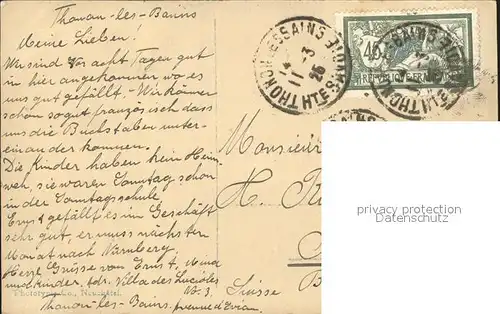 Thonon-les-Bains
Meine Lieben.
Wir sind vor acht Tagen gut
in hier angekommen wo es
uns gut gefällt. Wir können
schon so gut französisch dass
uns die Buchstaben unter-
einander kommen.
Die Kinder haben kein Heim
weh, sie waren Sonntag schon
in der Sonntagsschule
Ernst gefällt es im Geschäft
sehr gut, er muss nächsten
Monat nach Nürnberg.
Herzl. Grüsse von Ernst,
und Kinder. Adr. Villa des Lucioles
No. 3.
Thonon-les-Bains. Avenue d'Evian
Phototypie Co., Neuchâtel
THONON-LES-BAINS
11 -3
25
HTE-SAVOIE
45
Monsieur
H.
Suisse
privacy protection
(Datenschutz)